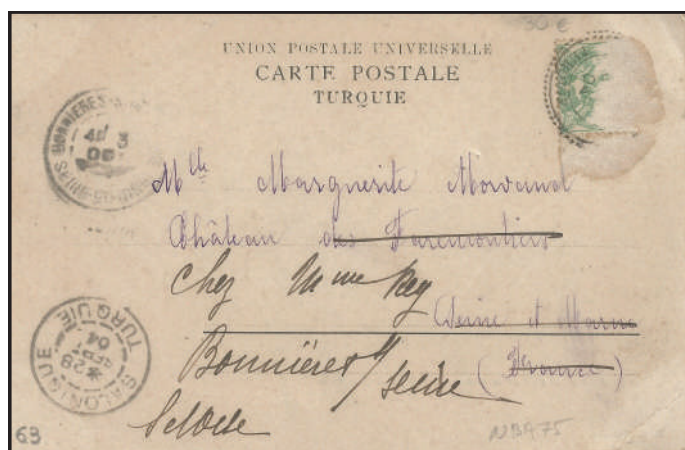 30 €
UNION POSTALE UNIVERSELLE
CARTE POSTALE
TURQUIE
BONNIERES
SEINE-ET-OISE
Mlle Marguerite Morand
Château des Faremoutiers
chez Mme Rey
Seine et Marne
Bonnières s/ seine (France)
Set Oise
SALONIQUE
TURQUIE
28
04
63
NBA75